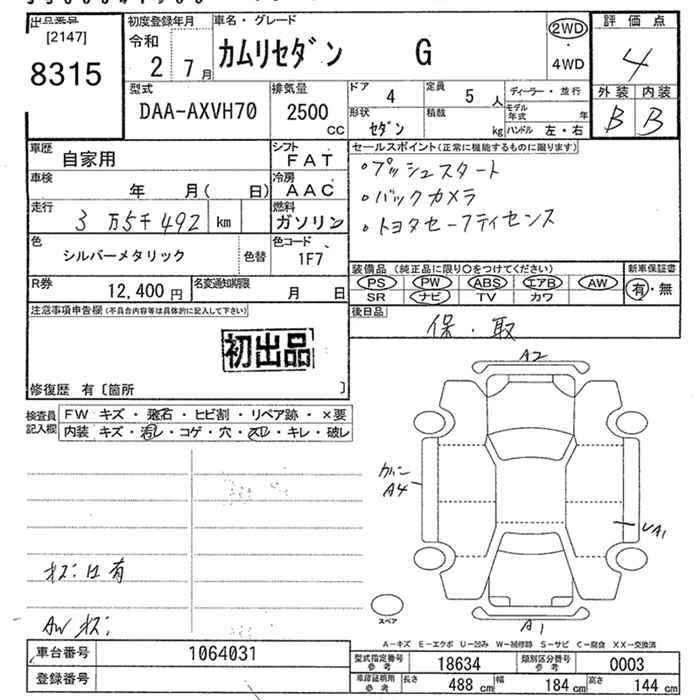 出品番号
[2147]
8315
初度登録年月
令和
2 7月
車名・グレード
カムリセダン G
2WD
・
4WD
評価点
4
外装 内装
B B
型式
DAA-AXVH70
排気量
2500
CC
ドア
4
定員
5 人
形状
セダン
積載
kg
ディーラー・並行
モデル年式 年
ハンドル 左・右
車歴
自家用
シフト
FAT
車検
年 月( 日)
冷房
AAC
走行
3 万5千492 km
燃料
ガソリン
色
シルバーメタリック
色替
色コード
1F7
R券
12,400 円
名変通知期限
月 日
セールスポイント(正常に機能するものに限ります)
・プッシュスタート
・バックカメラ
・トヨタセーフティセンス
装備品 (純正品に限り○をつけてください)
新車保証書
PS PW ABS エアB AW
SR ナビ TV カワ
有・無
後日品
保・取
注意事項申告欄(不具合内容等は具体的に記入して下さい)
初出品
修復歴 有〔箇所 〕
検査員記入欄
FW キズ・飛石・ヒビ割・リペア跡・×要
内装 キズ・汚レ・コゲ・穴・スレ・キレ・破レ
A2
A4
A1
A1
スペア
AW キズ
A-キズ E-エクボ U-凹み W-補修跡 S-サビ C-腐食 XX-交換済
車台番号
1064031
登録番号
型式指定番号
参考
18634
類別区分番号
参考
0003
車庫証明用
参考
長さ 488 cm
幅 184 cm
高さ 144 cm